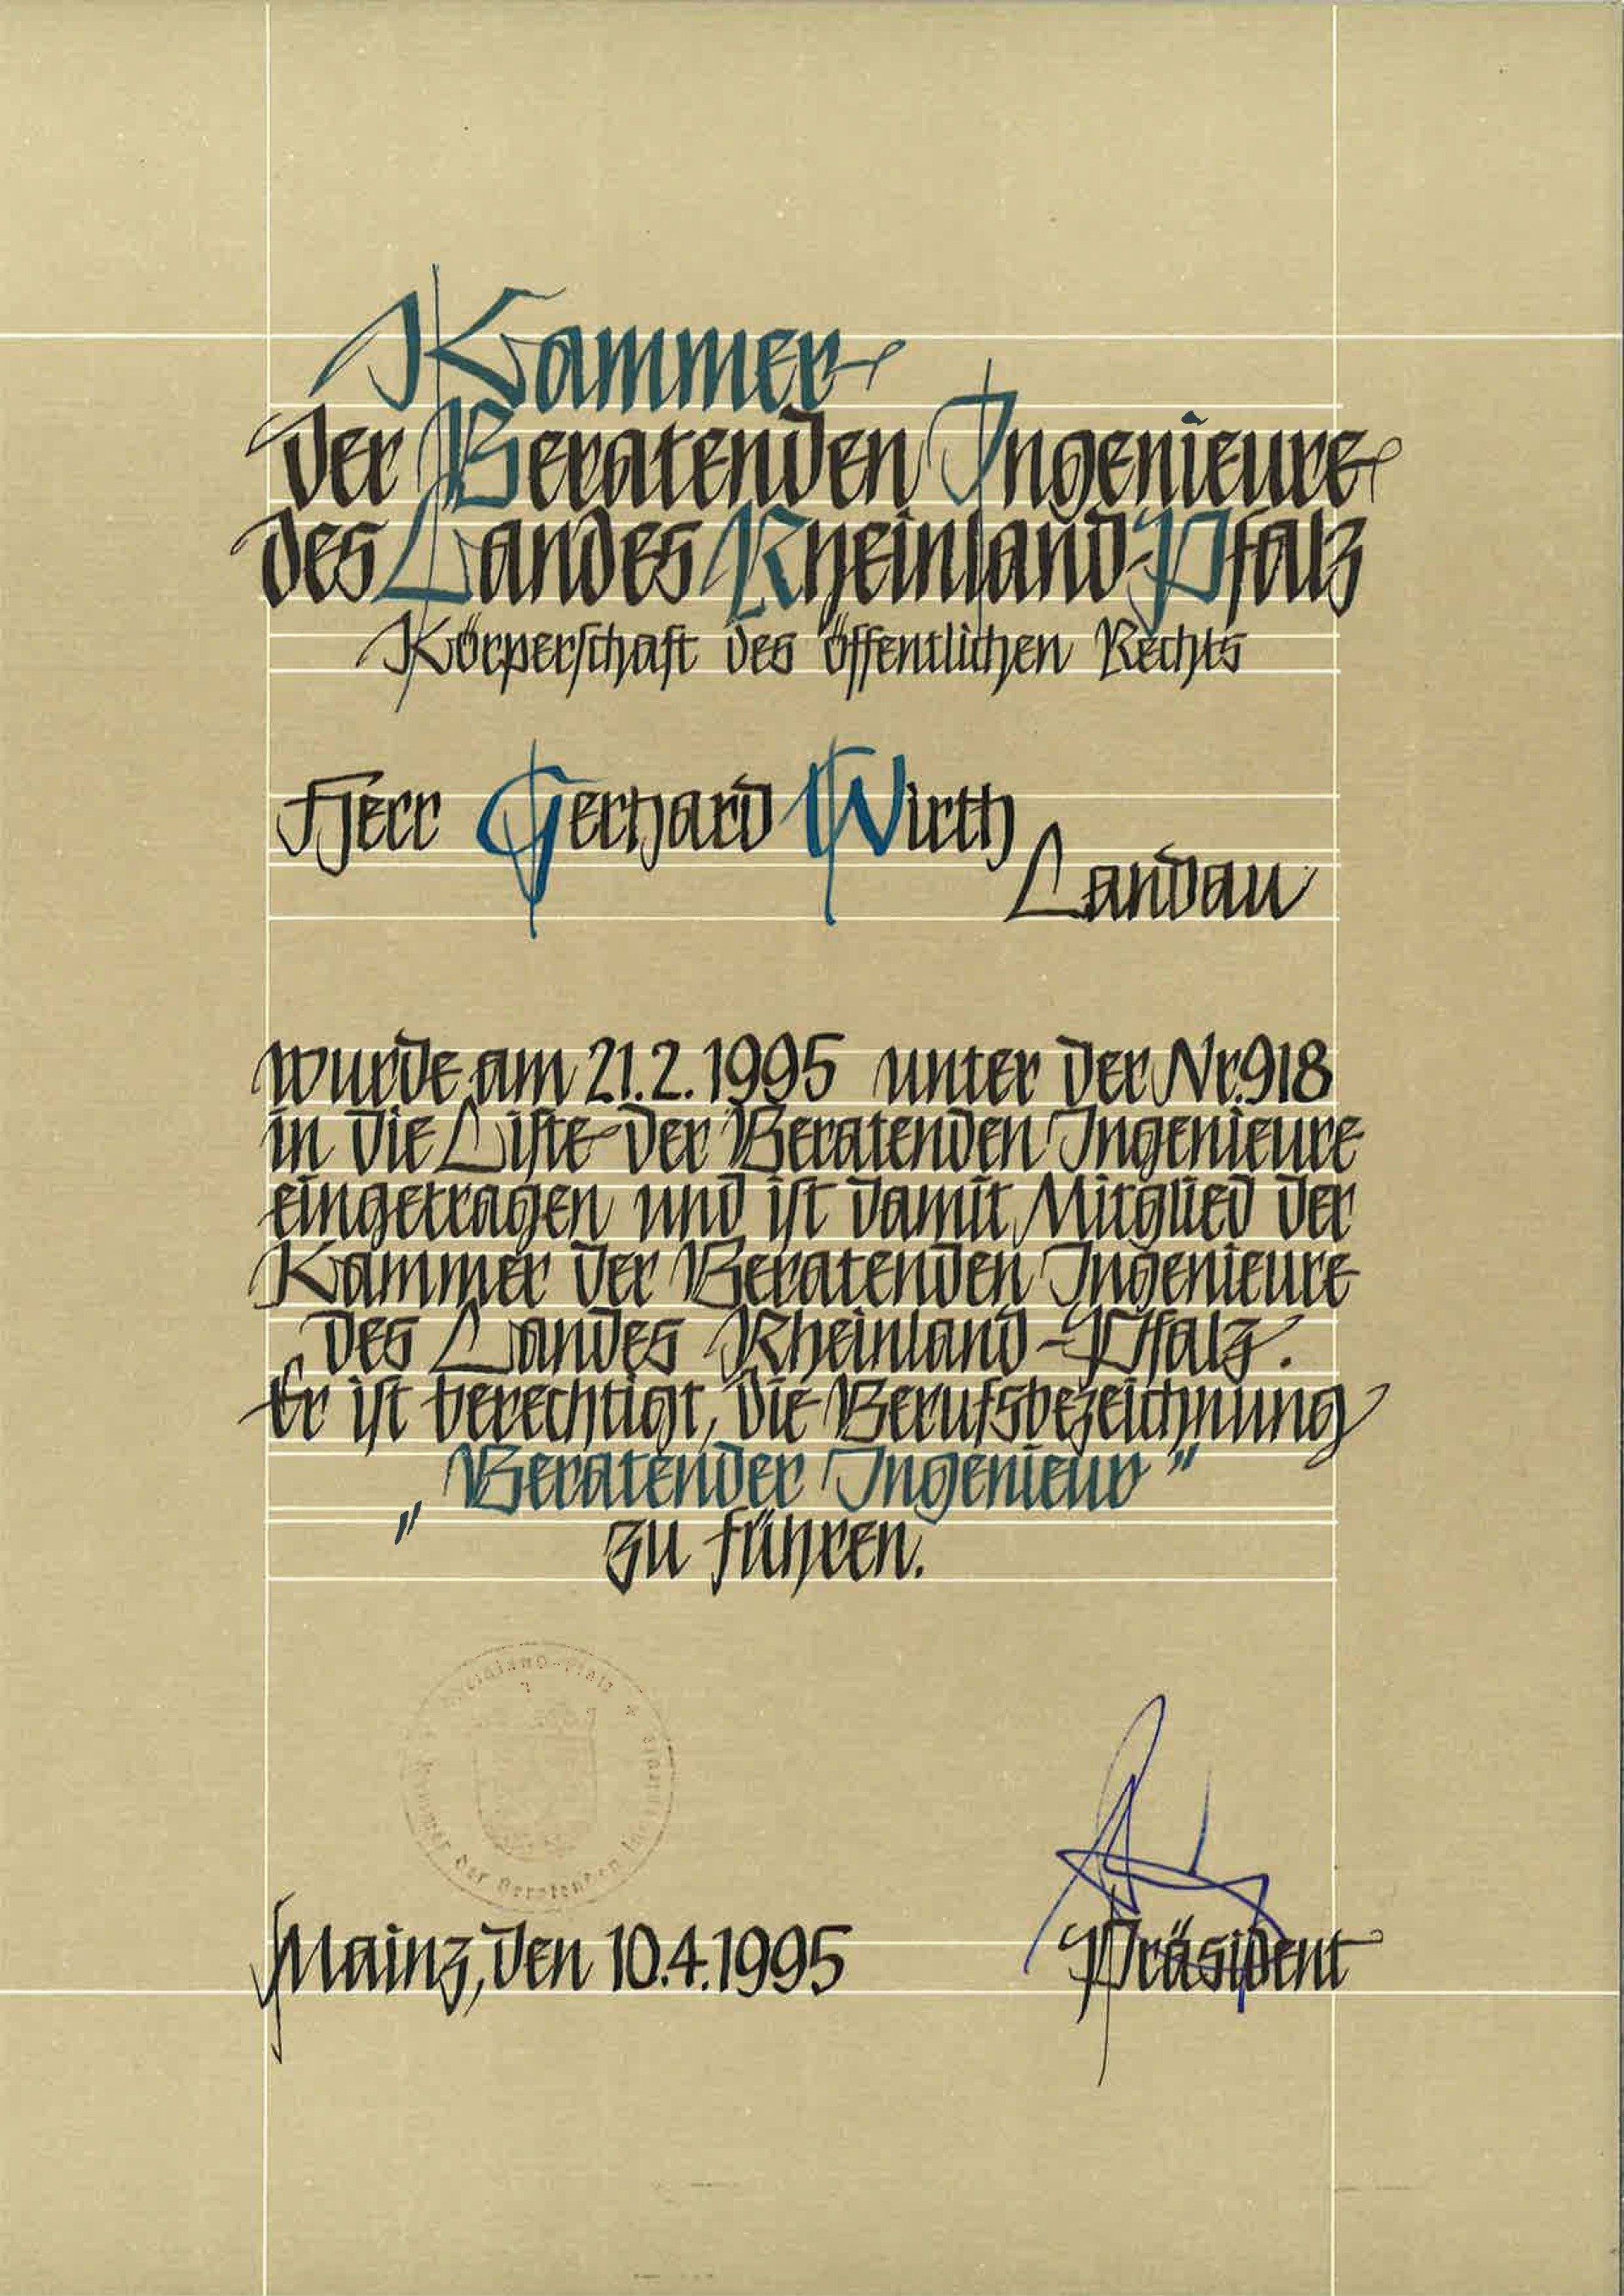 Kammer
der Beratenden Ingenieure
des Landes Rheinland-Pfalz
Körperschaft des öffentlichen Rechts
Herr Gerhard Wirth
Landau
wurde am 21.2.1995 unter der Nr.918
in die Liste der Beratenden Ingenieure
eingetragen und ist damit Mitglied der
Kammer der Beratenden Ingenieure
des Landes Rheinland-Pfalz.
Er ist berechtigt, die Berufsbezeichnung
„Beratender Ingenieur"
zu führen.
Kammer der Beratenden Rheinland-Pfalz
Mainz, den 10.4.1995
Präsident